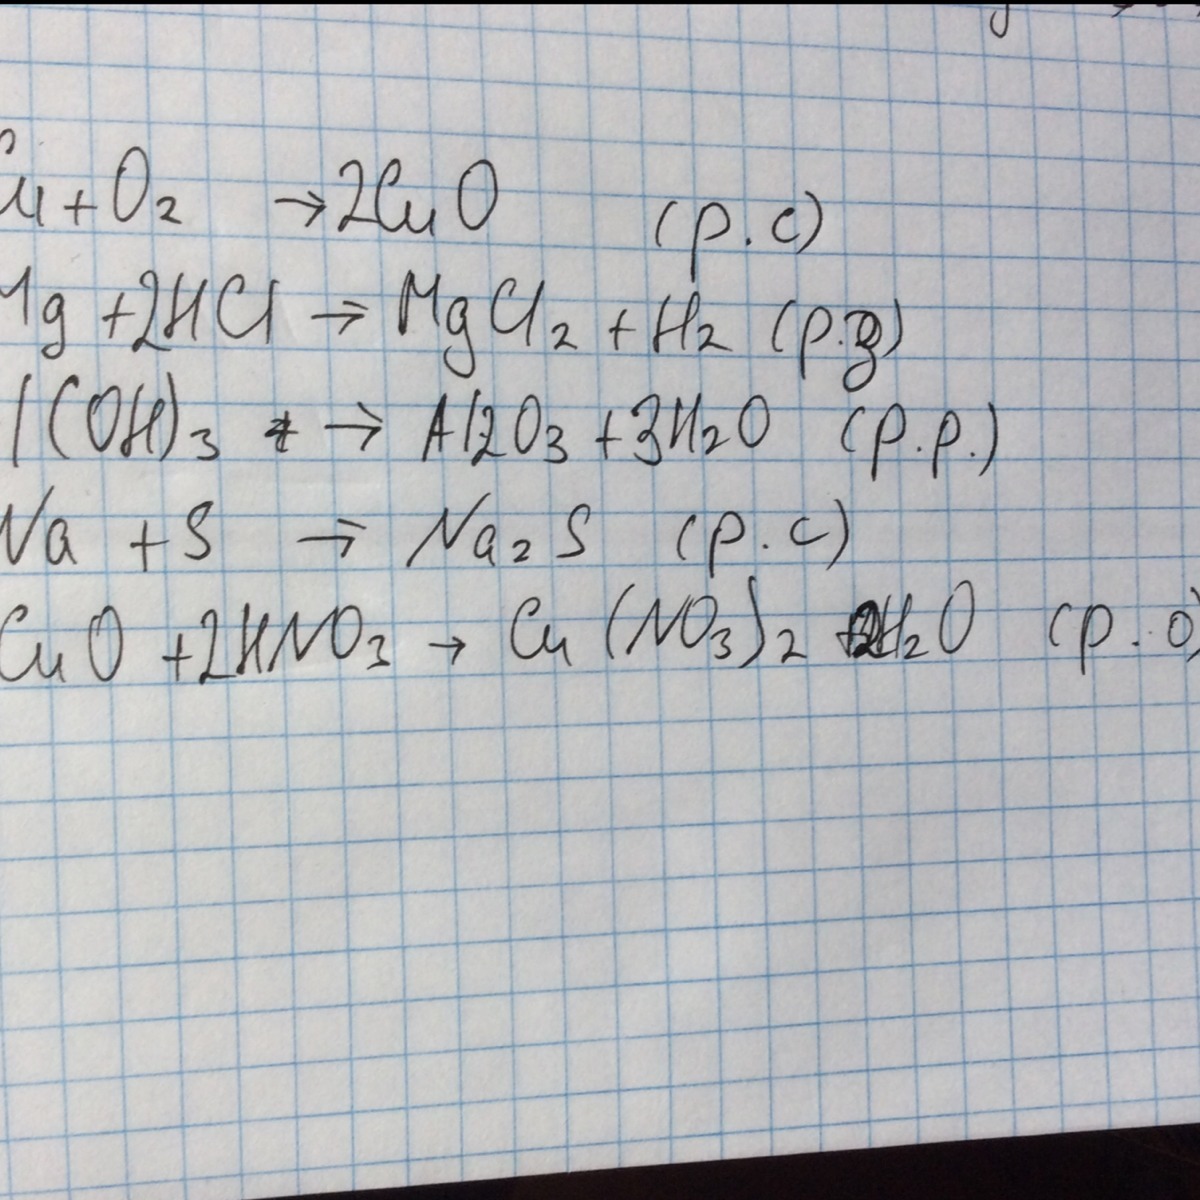 Cu + O2 → 2CuO (р.с)
Mg + 2HCl → MgCl2 + H2 (р.з)
l(OH)3 → Al2O3 + 3H2O (р.р.)
Na + S → Na2S (р.с)
CuO + 2HNO3 → Cu(NO3)2 H2O (р.о)